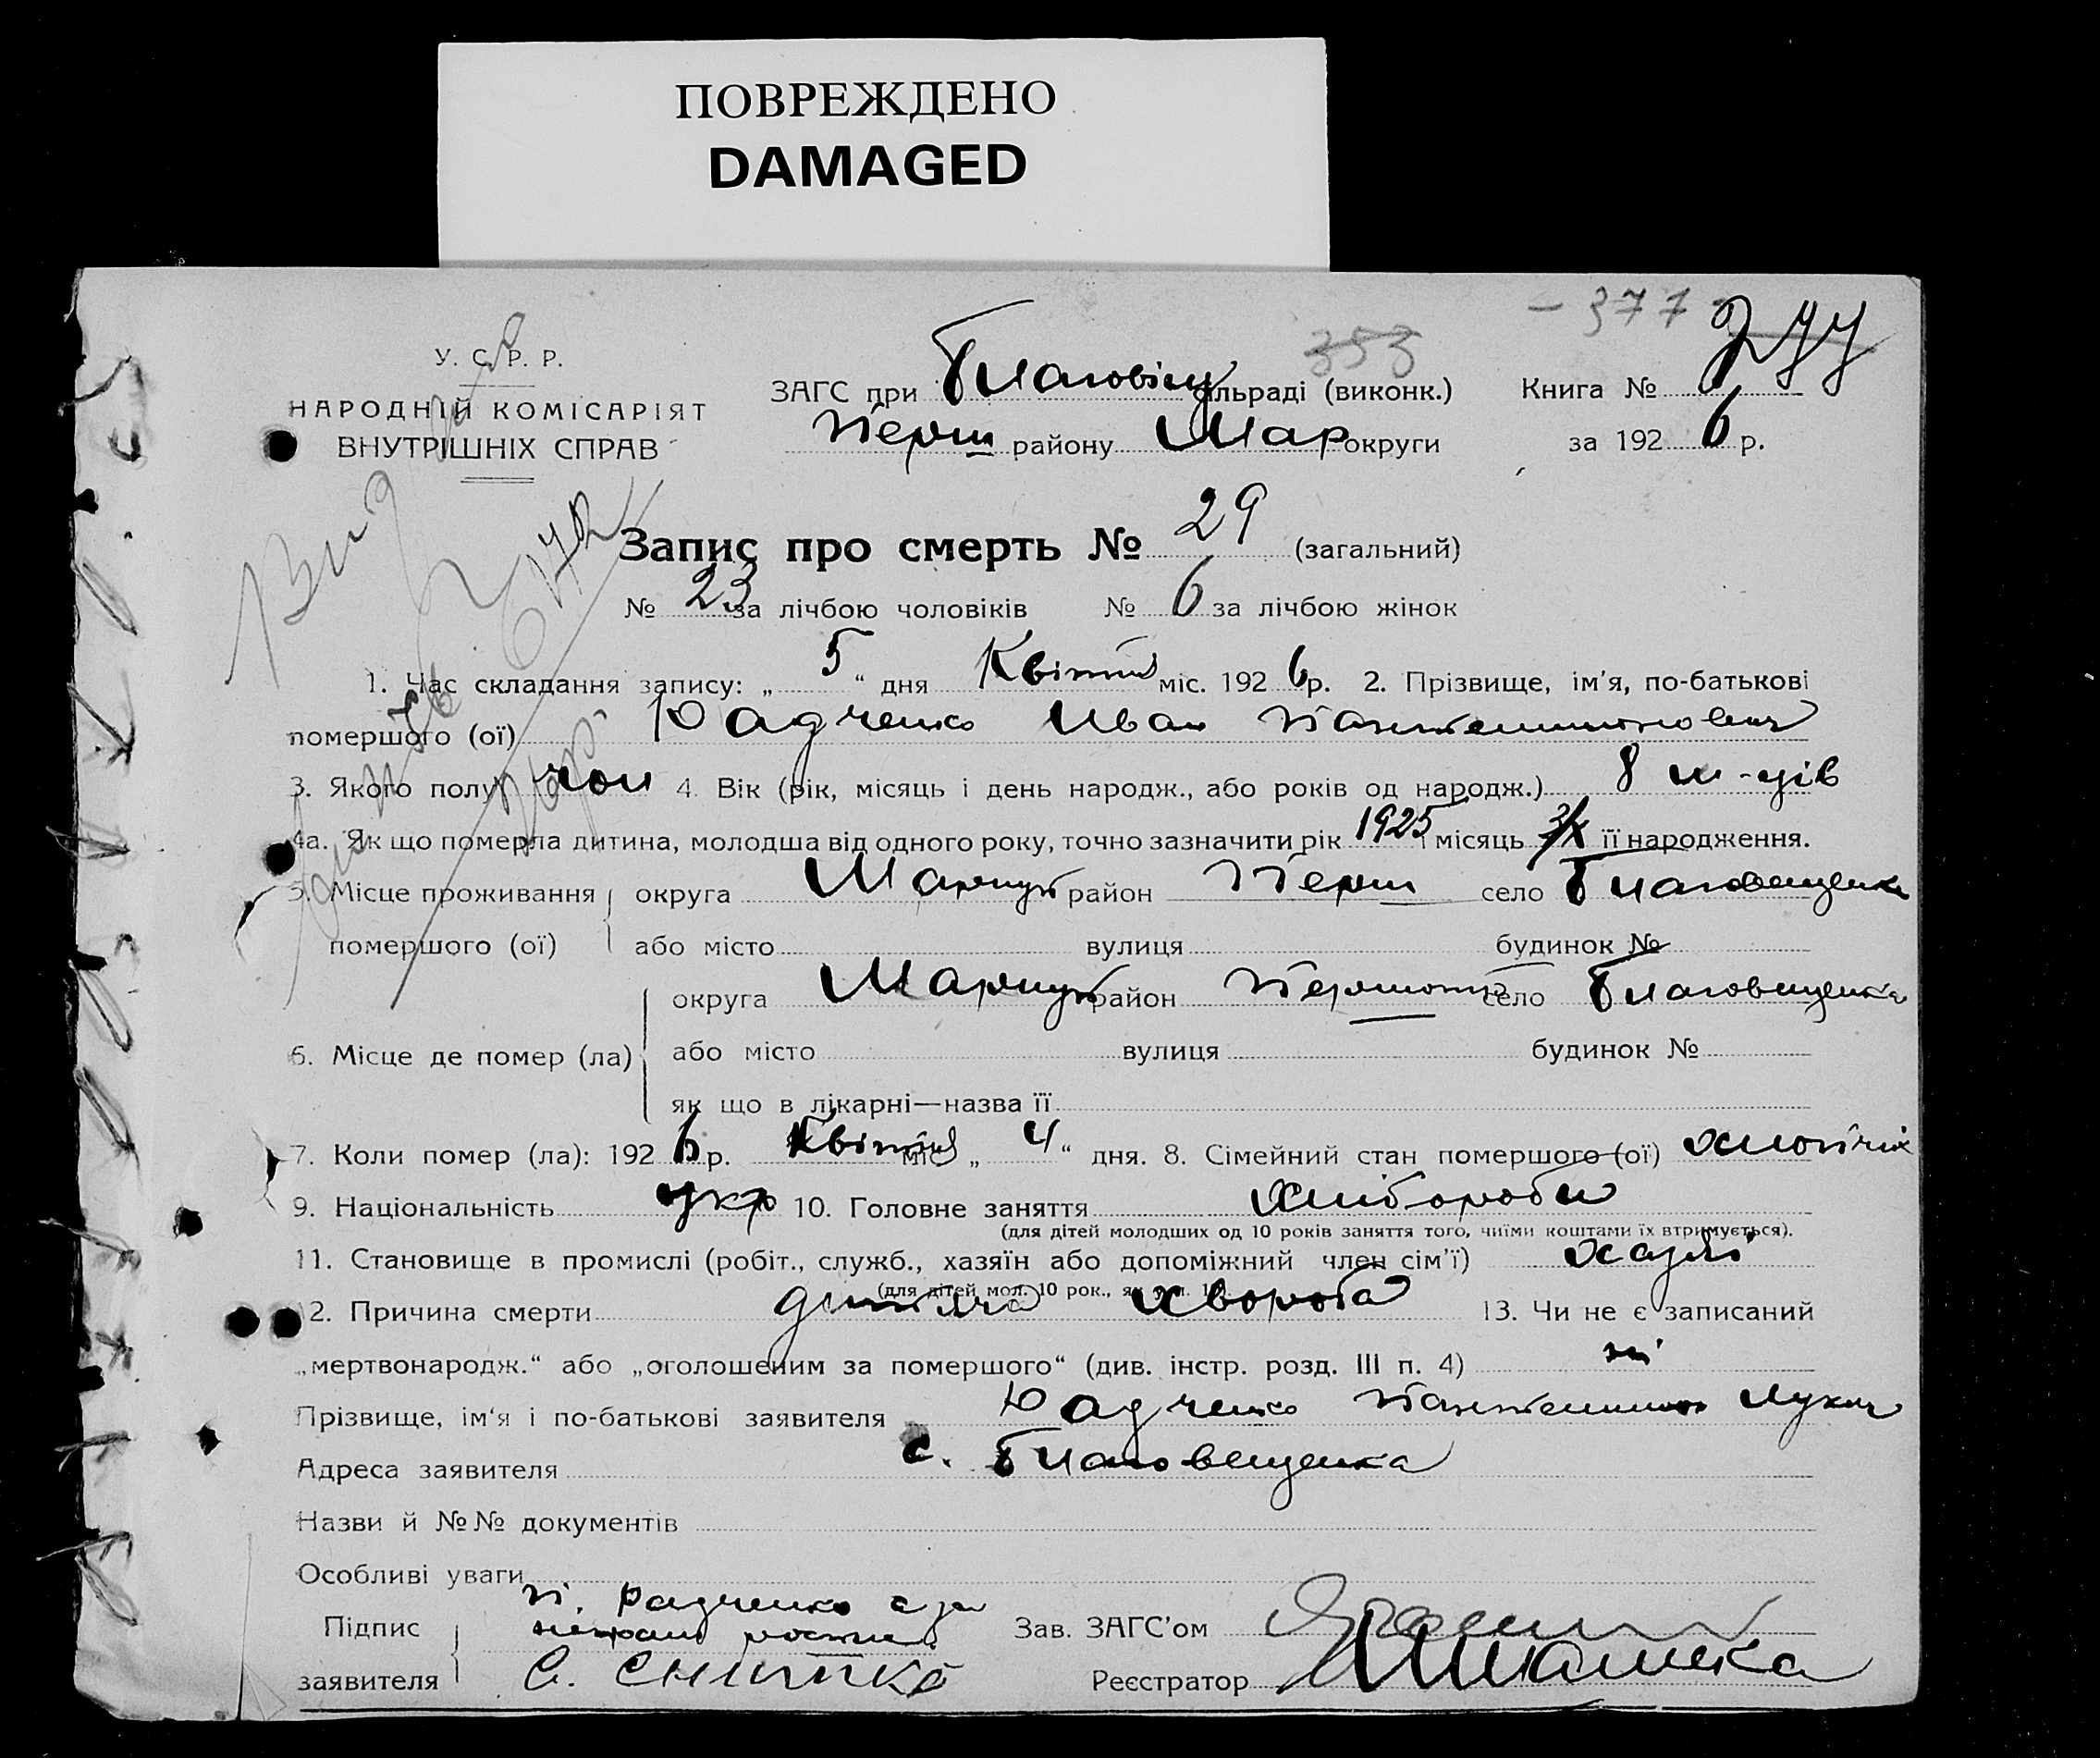 ПОВРЕЖДЕНО
DAMAGED
- 377 -
353
277
У. С. Р. Р.
НАРОДНІЙ КОМІСАРІЯТ
ВНУТРІШНІХ СПРАВ
ЗАГС при Благовіщ сільраді (виконк.) Книга №
Перш району Мар округи за 192 6 р.
Запис про смерть № 29 (загальний)
№ 23 за лічбою чоловіків № 6 за лічбою жінок
1. Час складання запису: „ 5 “ дня Квітня міс. 192 6 р. 2. Прізвище, ім’я, по-батькові
помершого (ої) Радченко Иван Пантелимонович
3. Якого полу чол 4. Вік (рік, місяць і день народж., або років од народж.) 8 м-ців
4а. Як що померла дитина, молодша від одного року, точно зазначити рік 1925 і місяць її народження.
5. Місце проживання округа Маріуп район Перш село Благовещенка
помершого (ої) або місто вулиця будинок №
округа Маріуп район село Благовещенка
6. Місце де помер (ла) або місто вулиця будинок №
як що в лікарні—назва її
7. Коли помер (ла): 192 6 р. Квітня міс. „ 4 “ дня. 8. Сімейний стан помершого (ої) хлопчик
9. Національність укр 10. Головне заняття хлібороби
(для дітей молодших од 10 років заняття того, чиїми коштами їх втримується).
11. Становище в промислі (робіт., служб., хазяїн або допоміжний член сім’ї)
(для дітей мол. 10 рок., як у п. 10).
12. Причина смерти дитяча хвороба 13. Чи не є записаний
„мертвонародж.“ або „оголошеним за помершого“ (див. інстр. розд. III п. 4) ні
Прізвище, ім’я і по-батькові заявителя Радченко Пантелимон Лукич
Адреса заявителя с. Благовещенка
Назви й №№ документів
Особливі уваги
Підпис п. Радченко а за Зав. ЗАГС’ом
заявителя С. Реєстратор